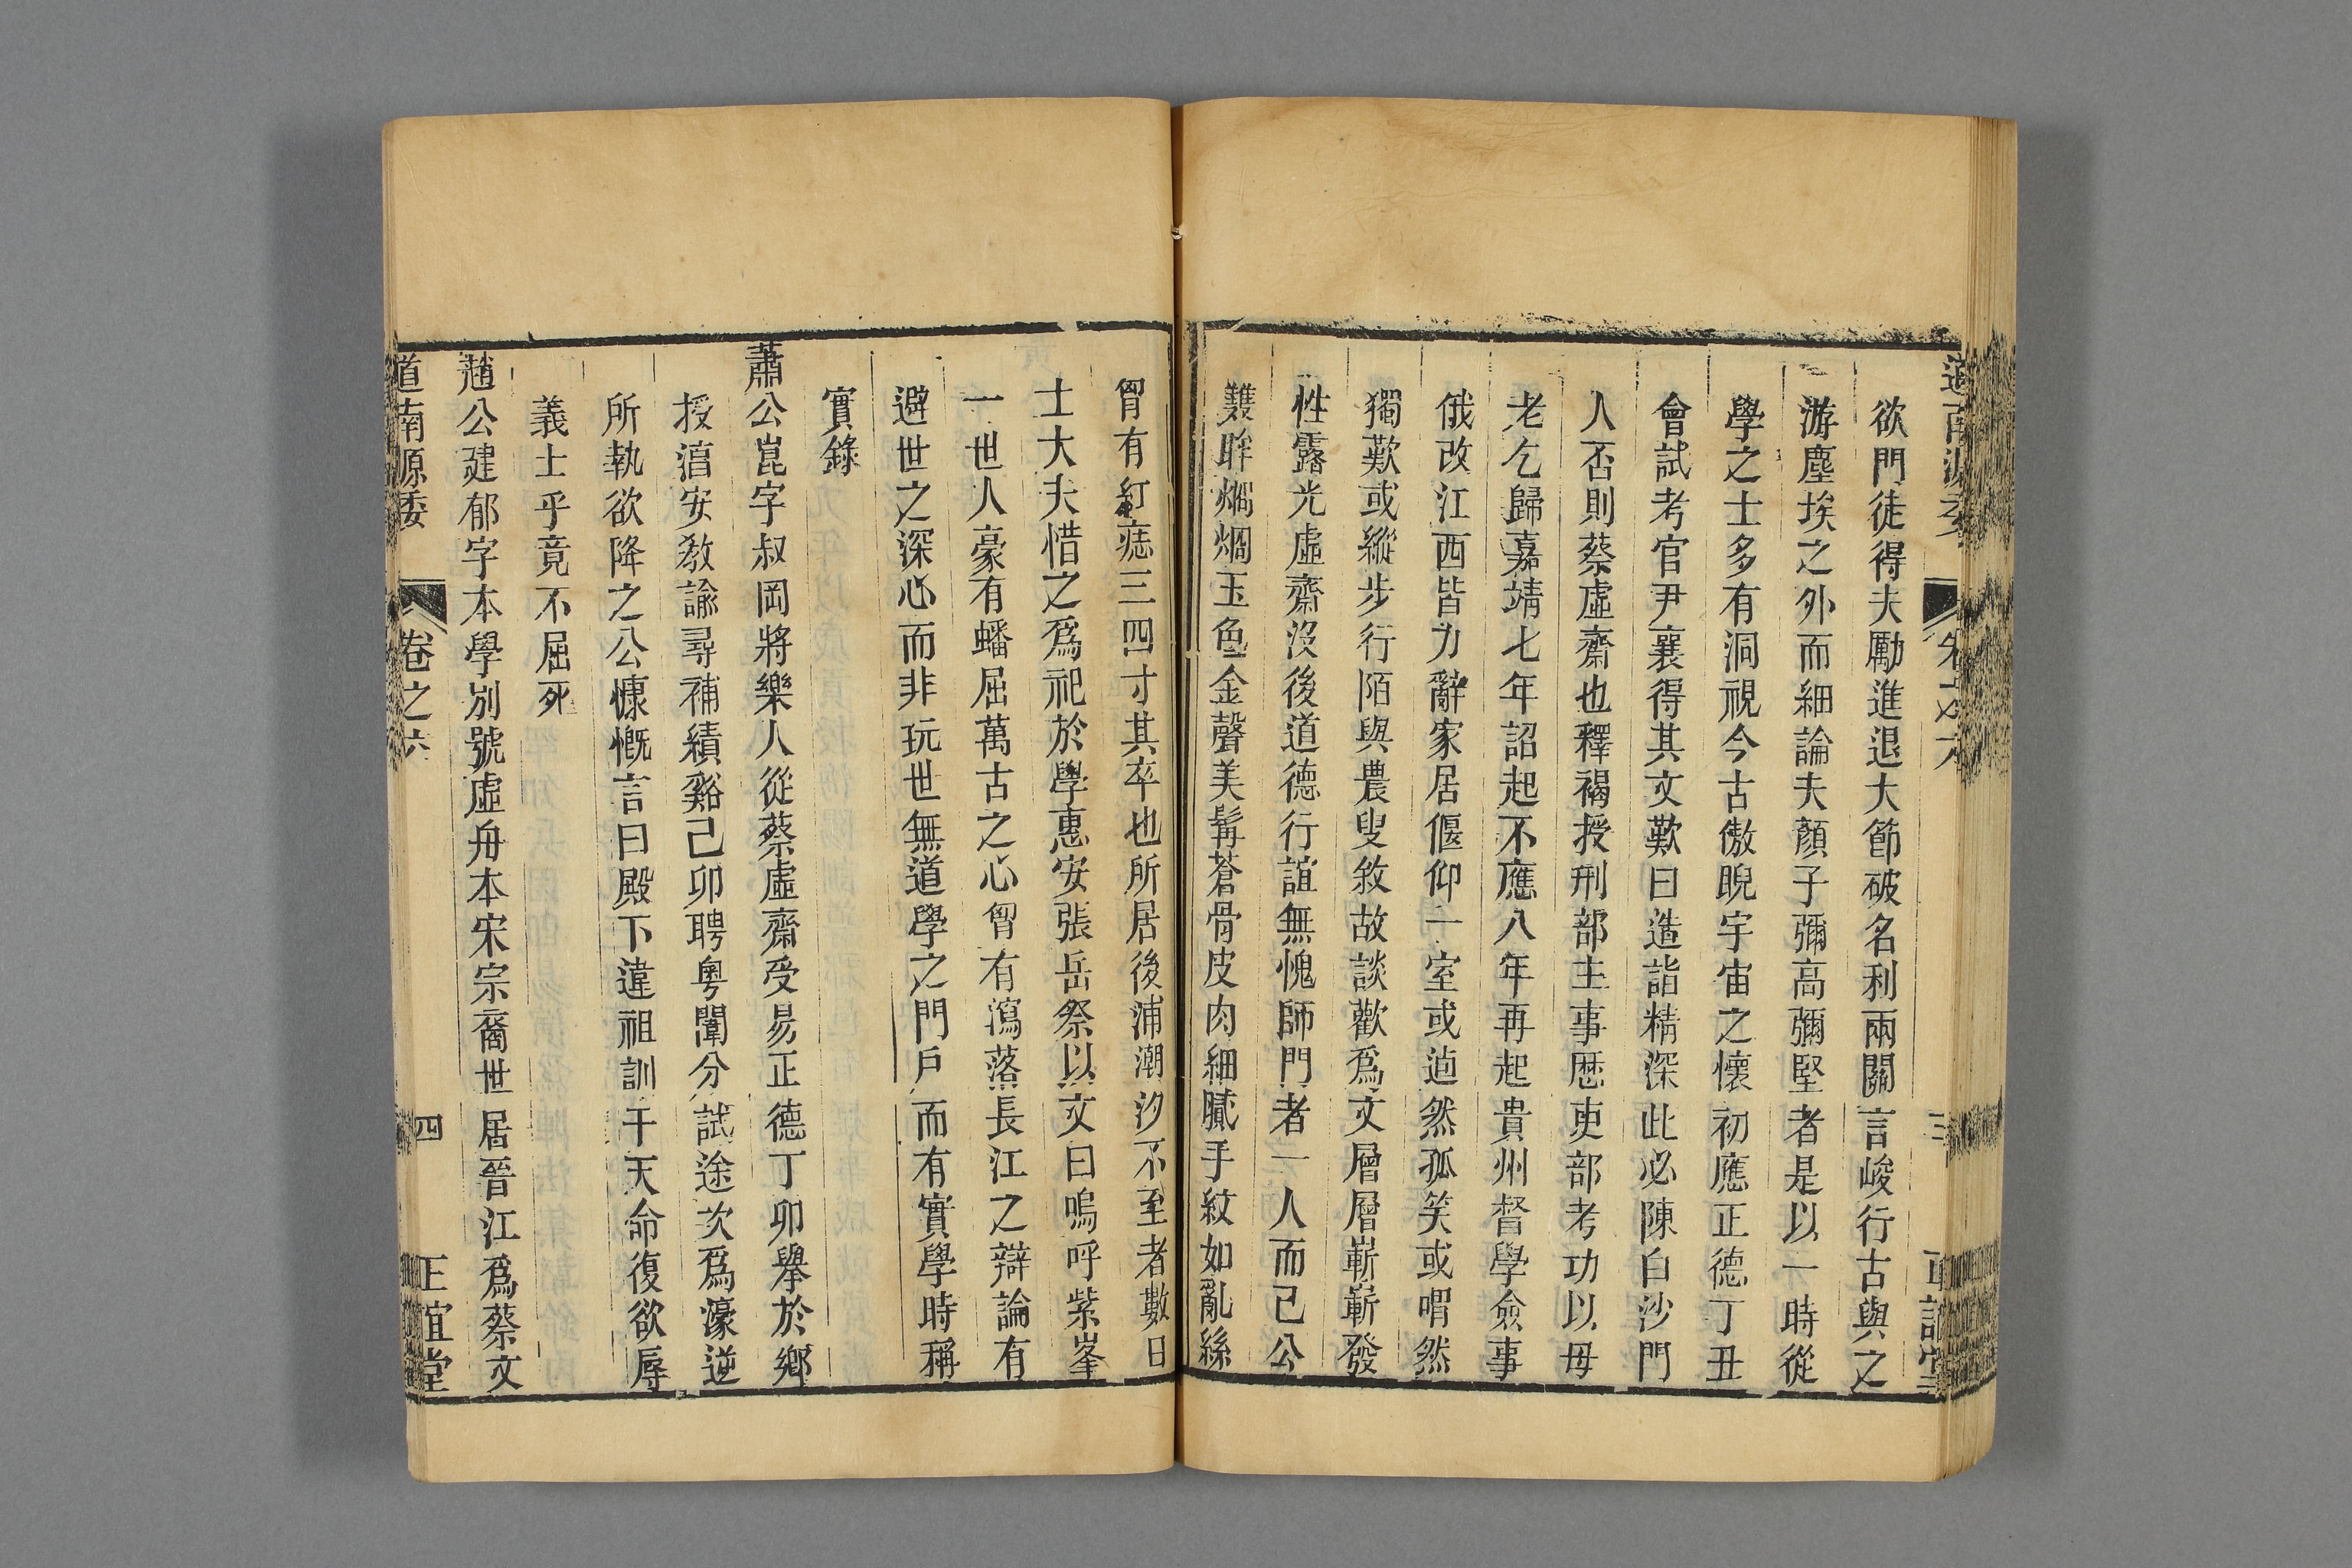 欲門徒得夫勵進退大節破名利兩關言峻行古與之
游塵埃之外而細論夫顏子彌高彌堅者是以一時從
學之士多有洞視今古傲睨宇宙之懷初應正德丁丑
會試考官尹襄得其文歎曰造詣精深此必陳白沙門
人否則蔡虛齋也釋褐授刑部主事歷吏部考功以母
老乞歸嘉靖七年詔起不應八年再起貴州督學僉事
俄改江西皆力辭家居偃仰一室或逌然孤笑或喟然
獨歎或縱步行陌與農叟敘故談歡爲文層層嶄嶄發
性露光虛齋沒後道德行誼無愧師門者一人而已公
雙眸烱烱玉色金聲美髯蒼骨皮肉細膩手紋如亂絲
胷有紅痣三四寸其卒也所居後浦潮汐不至者數日
士大夫惜之爲祀於學惠安張岳祭以文曰嗚呼紫峯
一世人豪有蟠屈萬古之心胷有瀉落長江之辯論有
避世之深心而非玩世無道學之門戶而有實學時稱
實錄
蕭公崑字叔岡將樂人從蔡虛齋受易正德丁卯舉於鄉
授湻安教諭尋補績谿己卯聘粵闈分試途次爲濠逆
所執欲降之公慷慨言曰殿下違祖訓干天命復欲辱
義士乎竟不屈死
趙公建郁字本學別號虛舟本宋宗裔世居晉江爲蔡文
道南源委 卷之六 四 正誼堂